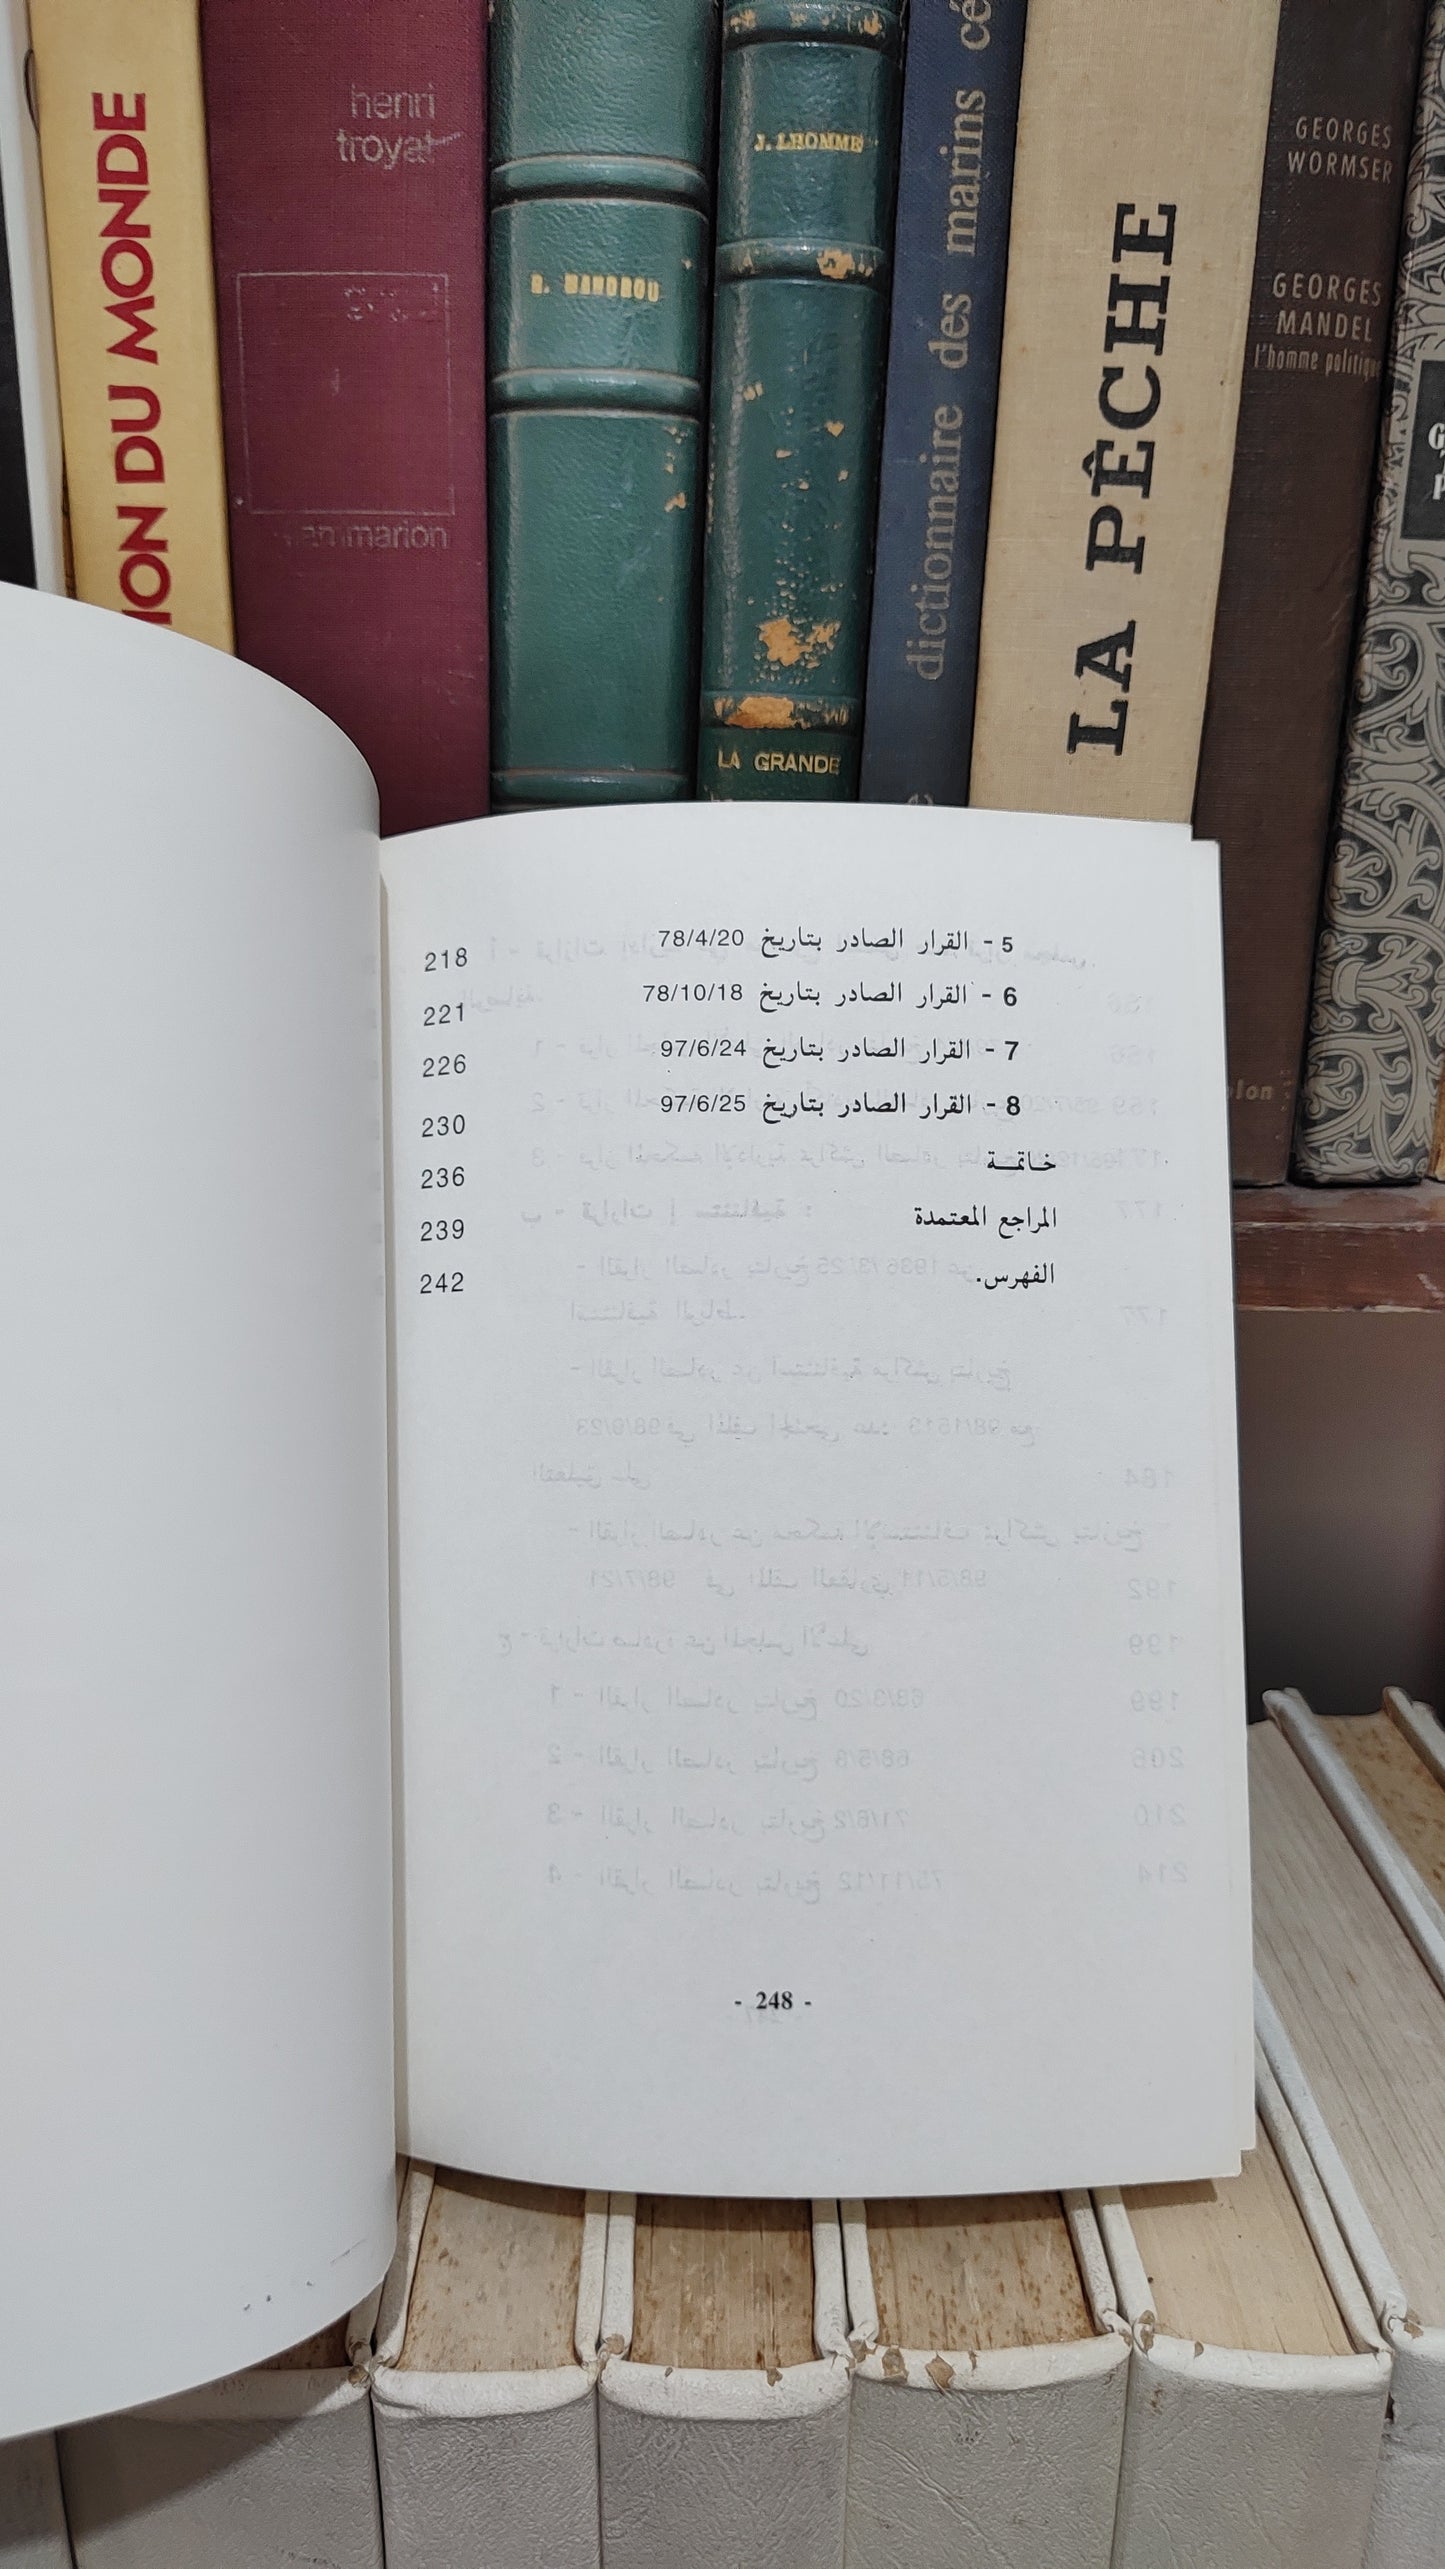 ION DU MONDE
henri
troyat
R. MANDROU
J. LHOMME
LA GRANDE
dictionnaire des marins cé
LA PÊCHE
GEORGES
WORMSER
GEORGES
MANDEL
l'homme politique
5 - القرار الصادر بتاريخ 78/4/20 218
6 - القرار الصادر بتاريخ 78/10/18 221
7 - القرار الصادر بتاريخ 97/6/24 226
8 - القرار الصادر بتاريخ 97/6/25 230
خاتمة 236
المراجع المعتمدة 239
الفهرس. 242
- 248 -